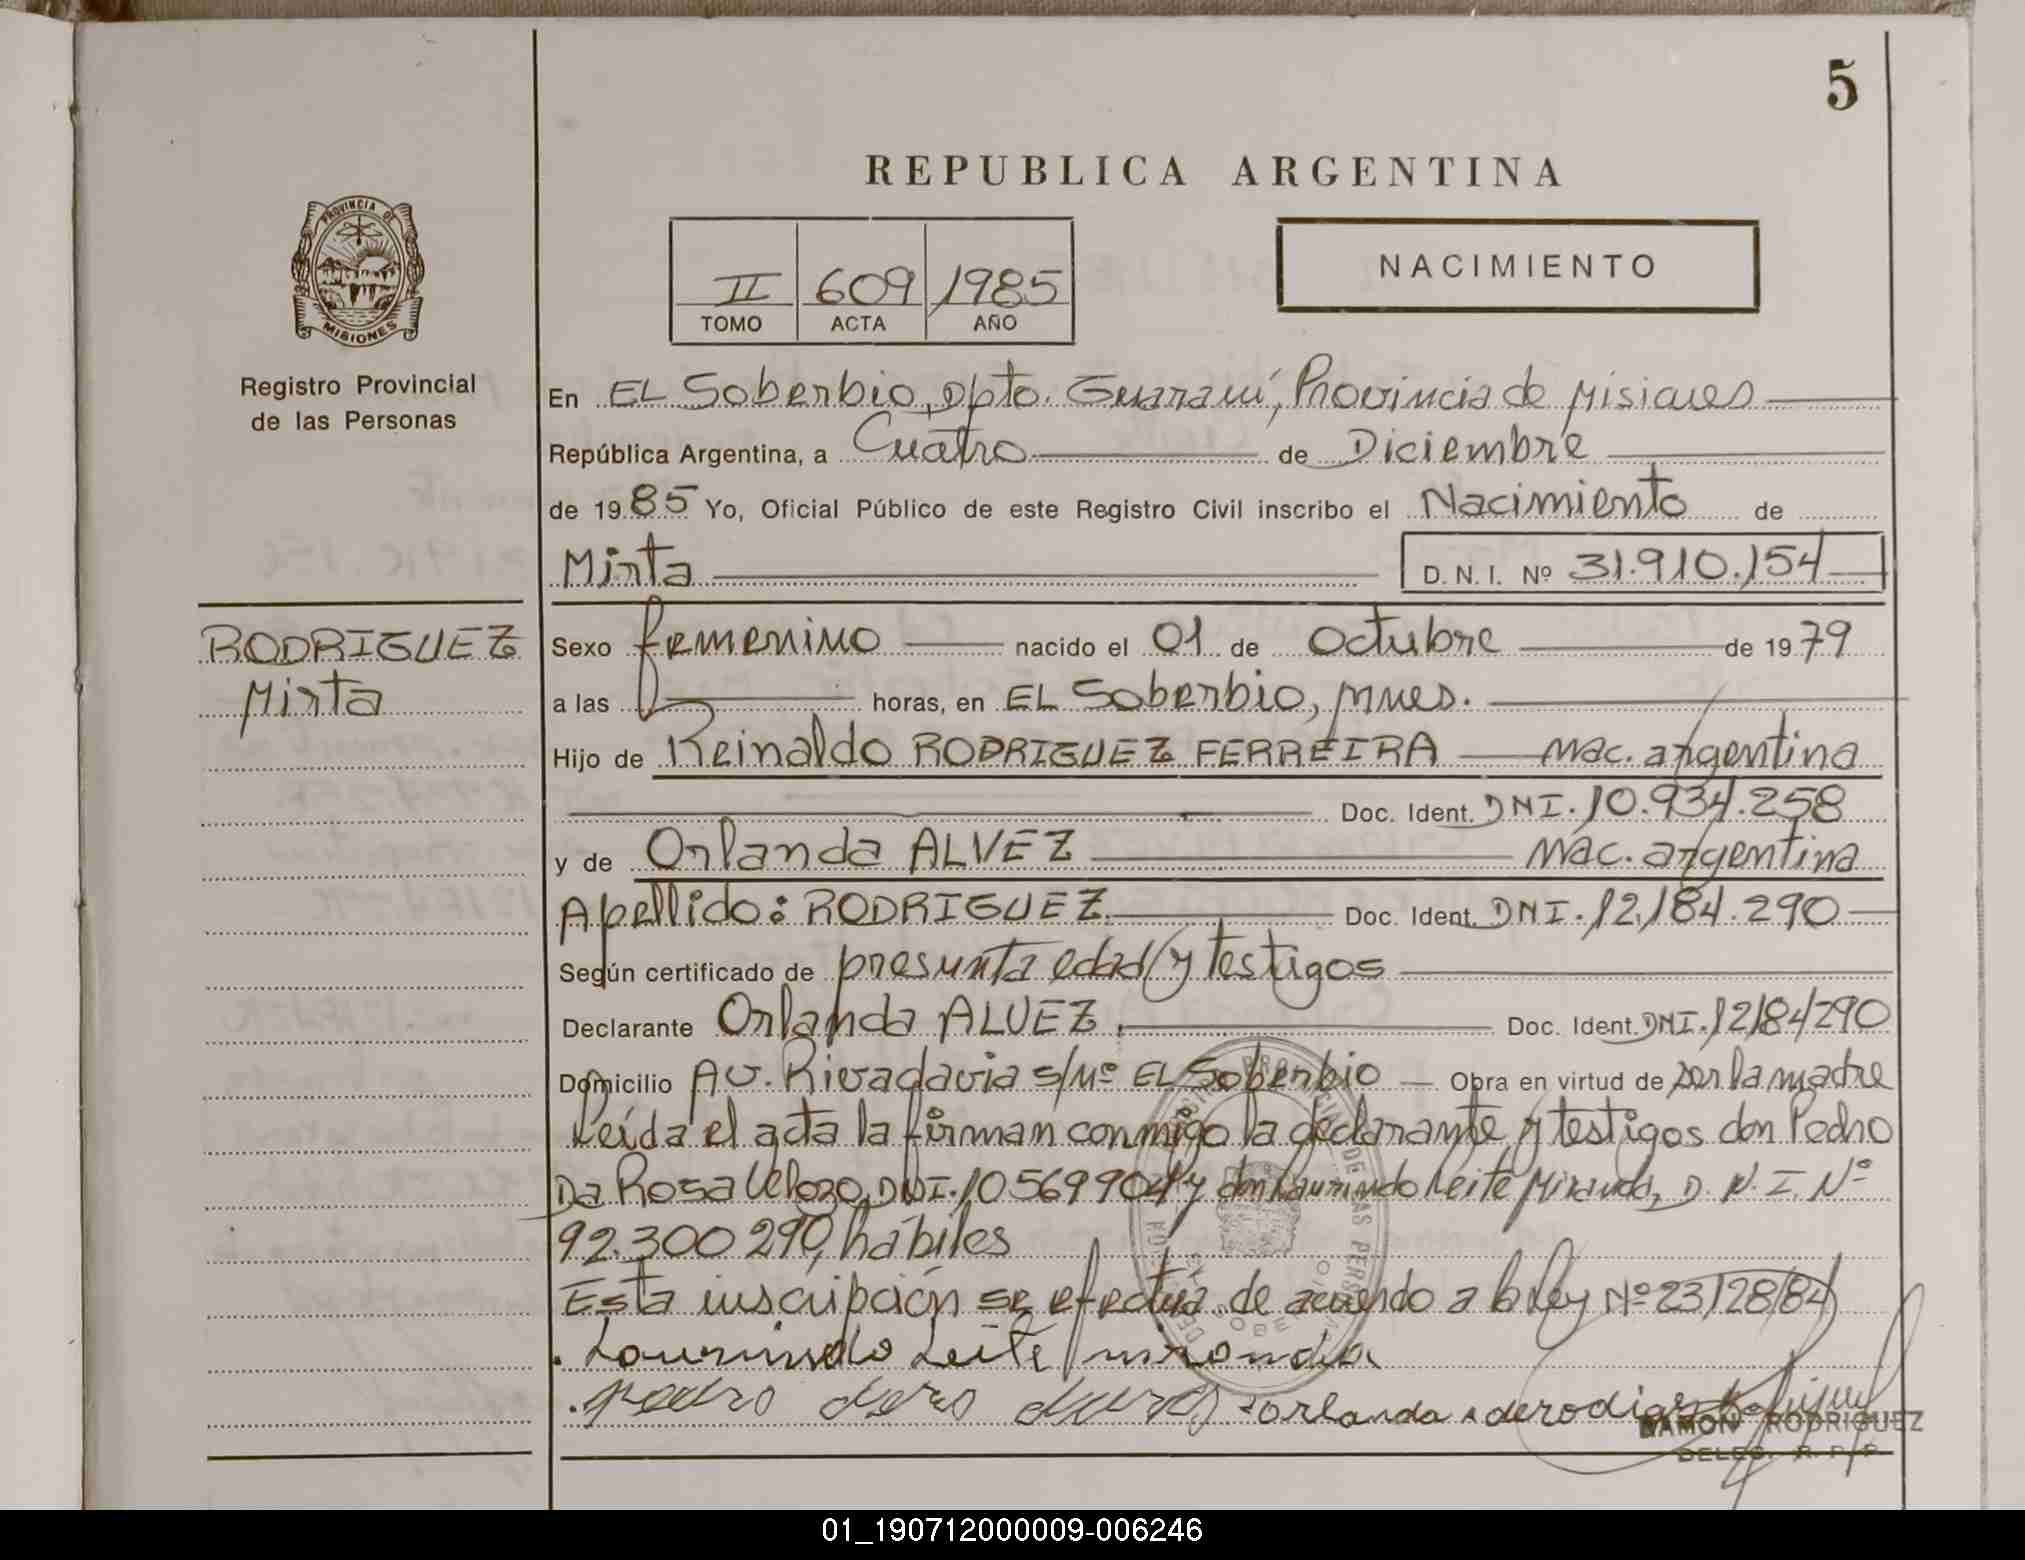 5
REPUBLICA ARGENTINA
PROVINCIA DE
MISIONES
Registro Provincial
de las Personas
II 609 1985
TOMO ACTA AÑO
NACIMIENTO
En EL Soberbio, Dpto. Guaraní, Provincia de Misiones
República Argentina, a Cuatro de Diciembre
de 1985 Yo, Oficial Público de este Registro Civil inscribo el Nacimiento de
Mirta D. N. I. Nº 31.910.154
RODRIGUEZ
Mirta
Sexo femenino nacido el 01 de Octubre de 1979
a las horas, en EL Soberbio, Mnes.
Hijo de Reinaldo RODRIGUEZ FERREIRA nac. argentina
Doc. Ident. DNI. 10.934.258
y de Orlanda ALVEZ nac. argentina
Apellido: RODRIGUEZ Doc. Ident. DNI. 12.184.290
Según certificado de presunta edad y testigos
Declarante Orlanda ALVEZ. Doc. Ident. DNI. 12184290
Domicilio AV. Rivadavia s/Nº EL Soberbio Obra en virtud de ser la madre
Leída el acta la firman conmigo la declarante y testigos don Pedro
Da Rosa Velozo, DNI. 10569904 y don Laurindo Leite Miranda, D. N. I. Nº
92.300290, hábiles
Esta inscripción se efectua de acuerdo a la Ley Nº 23128/84
Laurindo Leite miranda
pedro
orlanda A de rodigas
RAMON RODRIGUEZ
DELEG. R. P. P.
01_190712000009-006246